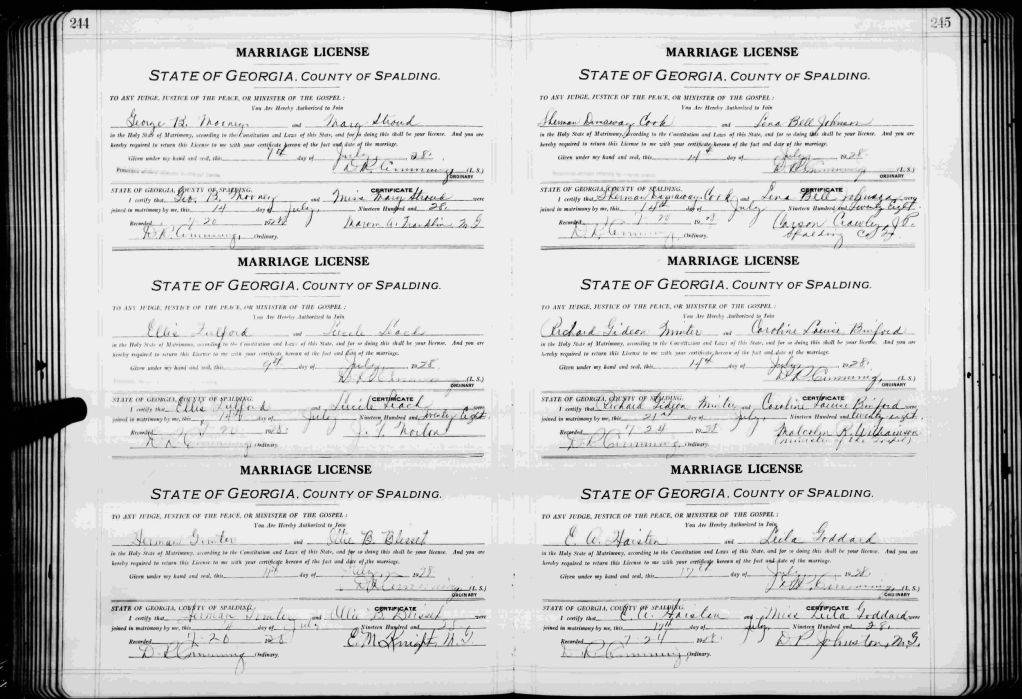 244
MARRIAGE LICENSE
STATE OF GEORGIA, COUNTY OF SPALDING.
TO ANY JUDGE, JUSTICE OF THE PEACE, OR MINISTER OF THE GOSPEL:
You Are Hereby Authorized to Join
George B. Mooney and Mary Stroud
in the Holy State of Matrimony, according to the Constitution and Laws of this State, and for so doing this shall be your license. And you are
hereby required to return this License to me with your certificate hereon of the fact and date of the marriage.
Given under my hand and seal, this 7th day of July, 1928.
D. R. Cumming (L. S.)
ORDINARY
STATE OF GEORGIA, COUNTY OF SPALDING. CERTIFICATE
I certify that Geo. B. Mooney and Miss Mary Stroud were
joined in matrimony by me, this 14 day of July, Nineteen Hundred and 28.
Recorded 7-20 1928 Marion A. Franklin M. G.
D. R. Cumming, Ordinary.
MARRIAGE LICENSE
STATE OF GEORGIA, COUNTY OF SPALDING.
TO ANY JUDGE, JUSTICE OF THE PEACE, OR MINISTER OF THE GOSPEL:
You Are Hereby Authorized to Join
Ellis Fulford and Lucile Leach
in the Holy State of Matrimony, according to the Constitution and Laws of this State, and for so doing this shall be your license. And you are
hereby required to return this License to me with your certificate hereon of the fact and date of the marriage.
Given under my hand and seal, this 9th day of July, 1928.
D. R. Cumming (L. S.)
ORDINARY
STATE OF GEORGIA, COUNTY OF SPALDING. CERTIFICATE
I certify that Ellis Fulford and Lucile Leach were
joined in matrimony by me, this 14th day of July Nineteen Hundred and twenty eight
Recorded 7-20 1928 Morton
D. R. Cumming, Ordinary.
MARRIAGE LICENSE
STATE OF GEORGIA, COUNTY OF SPALDING.
TO ANY JUDGE, JUSTICE OF THE PEACE, OR MINISTER OF THE GOSPEL:
You Are Hereby Authorized to Join
Herman and Ollie B. Blisset
in the Holy State of Matrimony, according to the Constitution and Laws of this State, and for so doing this shall be your license. And you are
hereby required to return this License to me with your certificate hereon of the fact and date of the marriage.
Given under my hand and seal, this day of July, 1928
D. R. Cumming (L. S.)
ORDINARY
STATE OF GEORGIA, COUNTY OF SPALDING. CERTIFICATE
I certify that Herman and Ollie B. Blisset were
joined in matrimony by me, this day of July Nineteen Hundred and
Recorded 7-20 1928 E. M. Knight, M. G.
D. R. Cumming Ordinary.
245
MARRIAGE LICENSE
STATE OF GEORGIA, COUNTY OF SPALDING.
TO ANY JUDGE, JUSTICE OF THE PEACE, OR MINISTER OF THE GOSPEL:
You Are Hereby Authorized to Join
Sherman Dunaway Cook and Lena Bell Johnson
in the Holy State of Matrimony, according to the Constitution and Laws of this State, and for so doing this shall be your license. And you are
hereby required to return this License to me with your certificate hereon of the fact and date of the marriage.
Given under my hand and seal, this 14th day of July, 1928.
D. R. Cumming (L. S.)
ORDINARY
STATE OF GEORGIA, COUNTY OF SPALDING. CERTIFICATE
I certify that Sherman Dunaway Cook and Lena Bell Johnson were
joined in matrimony by me, this 14th day of July Nineteen Hundred and twenty eight.
Recorded 7-20 1928 Carson Crawley J. P.
D. R. Cumming Ordinary. Spalding Co Ga
MARRIAGE LICENSE
STATE OF GEORGIA, COUNTY OF SPALDING.
TO ANY JUDGE, JUSTICE OF THE PEACE, OR MINISTER OF THE GOSPEL:
You Are Hereby Authorized to Join
Richard Gideon Minter and Caroline Louise Binford
in the Holy State of Matrimony, according to the Constitution and Laws of this State, and for so doing this shall be your license. And you are
hereby required to return this License to me with your certificate hereon of the fact and date of the marriage.
Given under my hand and seal, this 14th day of July, 1928.
D. R. Cumming, (L. S.)
ORDINARY
STATE OF GEORGIA, COUNTY OF SPALDING. CERTIFICATE
I certify that Richard Gideon Minter and Caroline Louise Binford were
joined in matrimony by me, this 21st day of July, Nineteen Hundred and twenty eight
Recorded 7-24 1928 Malcolm R. Williamson
D. R. Cumming Ordinary. (Minister of the Gospel)
MARRIAGE LICENSE
STATE OF GEORGIA, COUNTY OF SPALDING.
TO ANY JUDGE, JUSTICE OF THE PEACE, OR MINISTER OF THE GOSPEL:
You Are Hereby Authorized to Join
E. A. Haisten and Leila Goddard
in the Holy State of Matrimony, according to the Constitution and Laws of this State, and for so doing this shall be your license. And you are
hereby required to return this License to me with your certificate hereon of the fact and date of the marriage.
Given under my hand and seal, this 17th day of July 1928
Cumming (L. S.)
ORDINARY
STATE OF GEORGIA, COUNTY OF SPALDING. CERTIFICATE
I certify that E. A. Haisten and Miss Leila Goddard were
joined in matrimony by me, this 17th day of July, Nineteen Hundred and 28.
Recorded 7-24 1928. D. P. Johnston, M. G.
D. R. Cumming Ordinary.